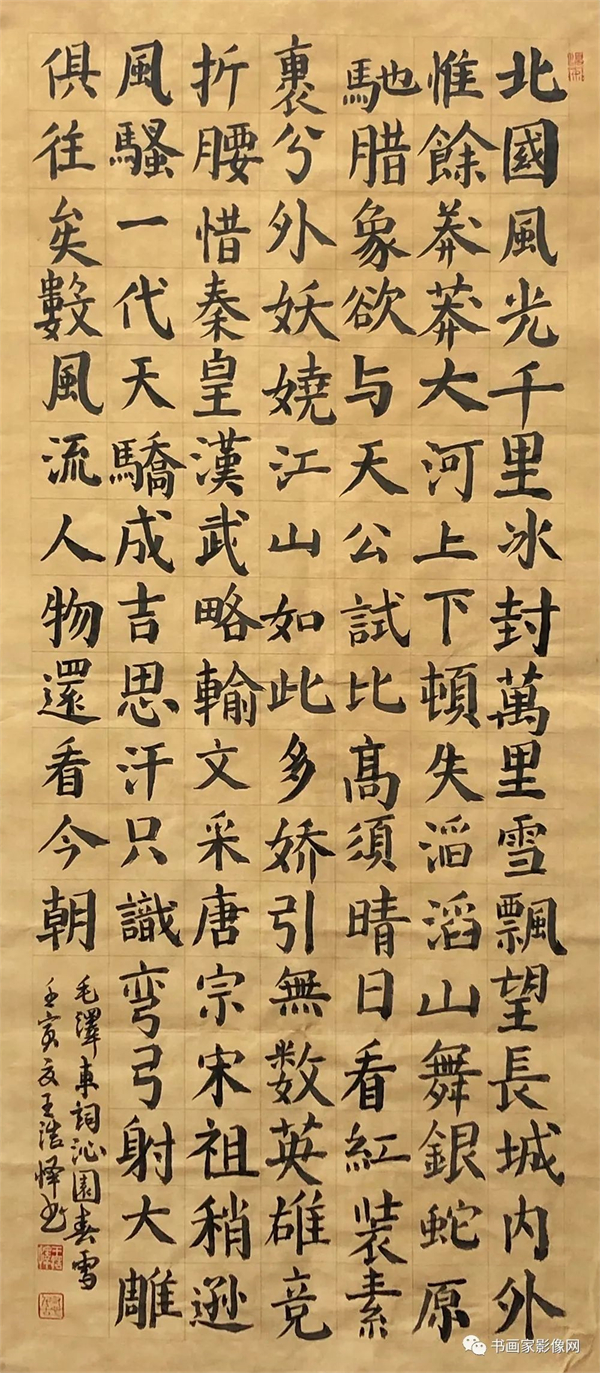 北國風光千里冰封萬里雪飄望長城内外
惟餘莽莽大河上下頓失滔滔山舞銀蛇原
馳腊象欲与天公試比髙須晴日看紅装素
裹分外妖嬈江山如此多娇引無数英雄竞
折腰惜秦皇漢武略輸文采唐宗宋祖稍遜
風騷一代天驕成吉思汗只識弯弓射大雕
俱往矣數風流人物還看今朝
毛澤东詞沁園春雪
壬寅夏王浩怿书
书画家影像网